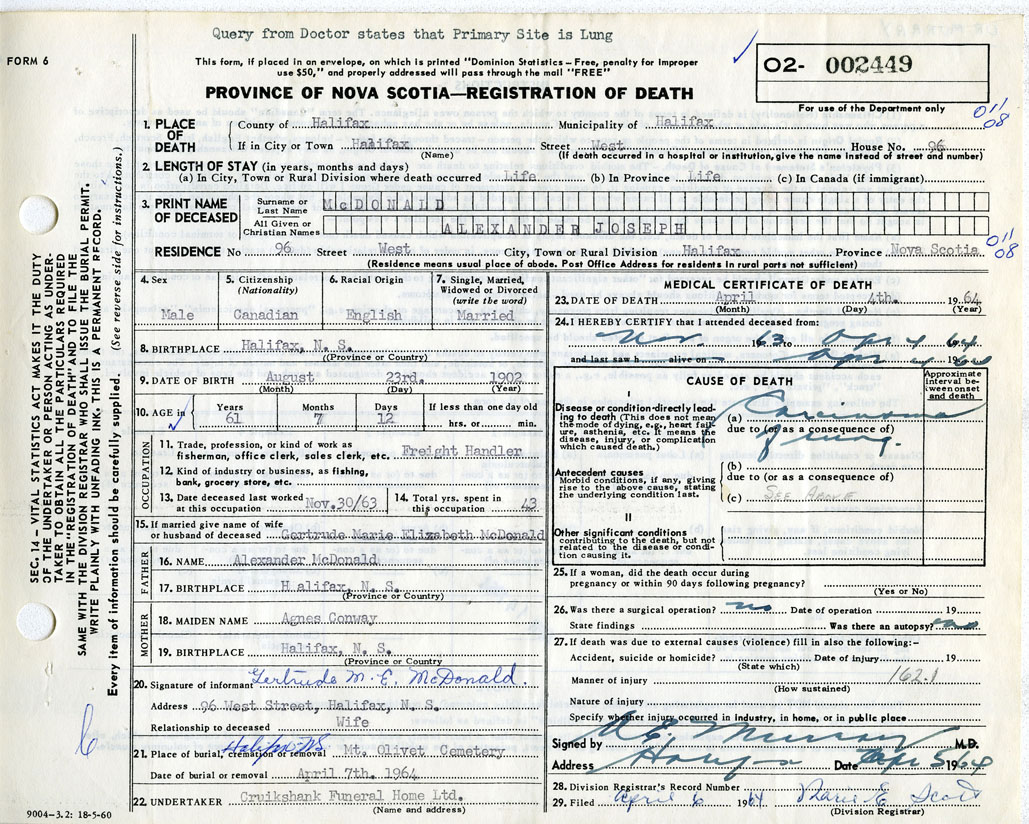 Query from Doctor states that Primary Site is Lung
FORM 6
This form, if placed in an envelope, on which is printed "Dominion Statistics—Free, penalty for improper
use $50," and properly addressed will pass through the mail "FREE"
O2- 002449
PROVINCE OF NOVA SCOTIA—REGISTRATION OF DEATH
For use of the Department only
011
08
1. PLACE OF DEATH
County of Halifax Municipality of Halifax
If in City or Town Halifax Street West House No. 96
(Name) (If death occurred in a hospital or institution, give the name instead of street and number)
2. LENGTH OF STAY (in years, months and days)
(a) In City, Town or Rural Division where death occurred Life (b) In Province Life (c) In Canada (if immigrant)
3. PRINT NAME OF DECEASED
Surname or Last Name McDONALD
All Given or Christian Names ALEXANDER JOSEPH
RESIDENCE No 96 Street West City, Town or Rural Division Halifax Province Nova Scotia
011
08
(Residence means usual place of abode. Post Office Address for residents in rural parts not sufficient)
4. Sex
Male
5. Citizenship
(Nationality)
Canadian
6. Racial Origin
English
7. Single, Married,
Widowed or Divorced
(write the word)
Married
8. BIRTHPLACE Halifax, N. S.
(Province or Country)
9. DATE OF BIRTH August 23rd. 1902
(Month) (Day) (Year)
10. AGE in Years Months Days If less than one day old
61 7 12 hrs. or min.
OCCUPATION
11. Trade, profession, or kind of work as
fisherman, office clerk, sales clerk, etc. Freight Handler
12. Kind of industry or business, as fishing,
bank, grocery store, etc.
13. Date deceased last worked
at this occupation Nov.30/63
14. Total yrs. spent in
this occupation 43
15. If married give name of wife
or husband of deceased Gertrude Marie Elizabeth McDonald
FATHER
16. NAME Alexander McDonald
17. BIRTHPLACE Halifax, N. S.
(Province or Country)
MOTHER
18. MAIDEN NAME Agnes Conway
19. BIRTHPLACE Halifax, N. S.
(Province or Country
20. Signature of informant Gertrude M. E. McDonald.
Address 96 West Street, Halifax, N. S.
Relationship to deceased Wife
21. Place of burial, cremation or removal Halifax NS Mt. Olivet Cemetery
Date of burial or removal April 7th. 1964
22. UNDERTAKER Cruikshank Funeral Home Ltd.
(Name and address)
9004-3.2: 18-5-60
MEDICAL CERTIFICATE OF DEATH
23. DATE OF DEATH April 4th. 1964
(Month) (Day) (Year)
24. I HEREBY CERTIFY that I attended deceased from:
Nov. 1963 to Apr 4 1964
and last saw h alive on Apr 4 1964
CAUSE OF DEATH
Approximate
interval be-
tween onset
and death
I
Disease or condition directly lead-
ing to death (This does not mean
the mode of dying, e.g., heart fail-
ure, asthenia, etc. It means the
disease, injury, or complication
which caused death.)
(a) Carcinoma
due to (or as a consequence of)
of lung.
Antecedent causes
Morbid conditions, if any, giving
rise to the above cause, stating
the underlying condition last.
(b)
due to (or as a consequence of)
(c) SEE ABOVE
II
Other significant conditions
contributing to the death, but not
related to the disease or condi-
tion causing it.
25. If a woman, did the death occur during
pregnancy or within 90 days following pregnancy?
(Yes or No)
26. Was there a surgical operation? no Date of operation 19
State findings Was there an autopsy? no
27. If death was due to external causes (violence) fill in also the following:-
Accident, suicide or homicide? Date of injury 19
(State which)
Manner of injury 162.1
(How sustained)
Nature of injury
Specify whether injury occurred in industry, in home, or in public place
Signed by Murray M.D.
Address Date Apr 5 1964
28. Division Registrar's Record Number
29. Filed April 6 1964 Marie E Scott
(Division Registrar)
SEC. 14 – VITAL STATISTICS ACT MAKES IT THE DUTY
OF THE UNDERTAKER OR PERSON ACTING AS UNDER-
TAKER TO OBTAIN ALL THE PARTICULARS REQUIRED
IN THE "REGISTRATION OF DEATH" AND TO FILE THE
SAME WITH THE DIVISION REGISTRAR WHO SHALL ISSUE THE BURIAL PERMIT.
WRITE PLAINLY WITH UNFADING INK, THIS IS A PERMANENT RECORD.
Every item of information should be carefully supplied. (See reverse side for instructions.)